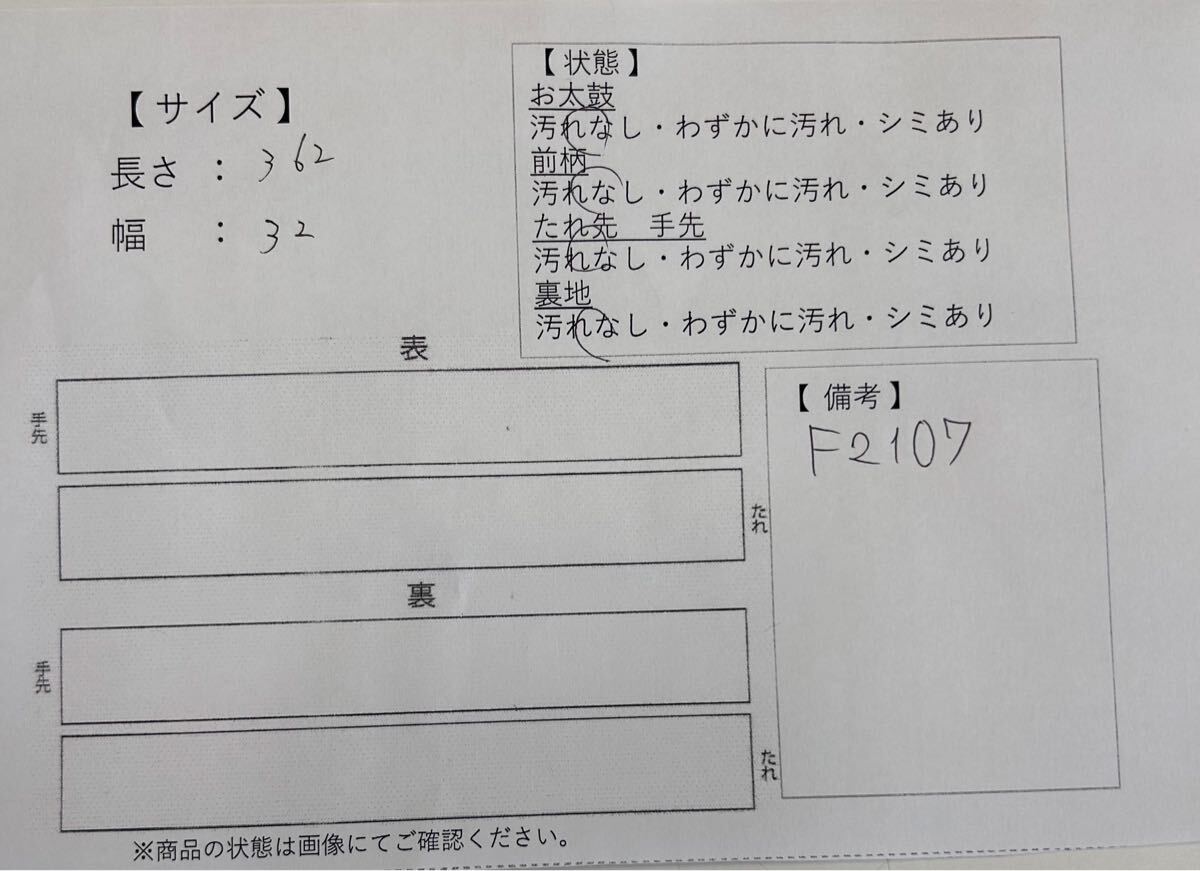 【サイズ】
長さ ： 362
幅 ： 32
【状態】
お太鼓
汚れなし・わずかに汚れ・シミあり
前柄
汚れなし・わずかに汚れ・シミあり
たれ先 手先
汚れなし・わずかに汚れ・シミあり
裏地
汚れなし・わずかに汚れ・シミあり
表
手先
たれ
裏
手先
たれ
【備考】
F2107
※商品の状態は画像にてご確認ください。